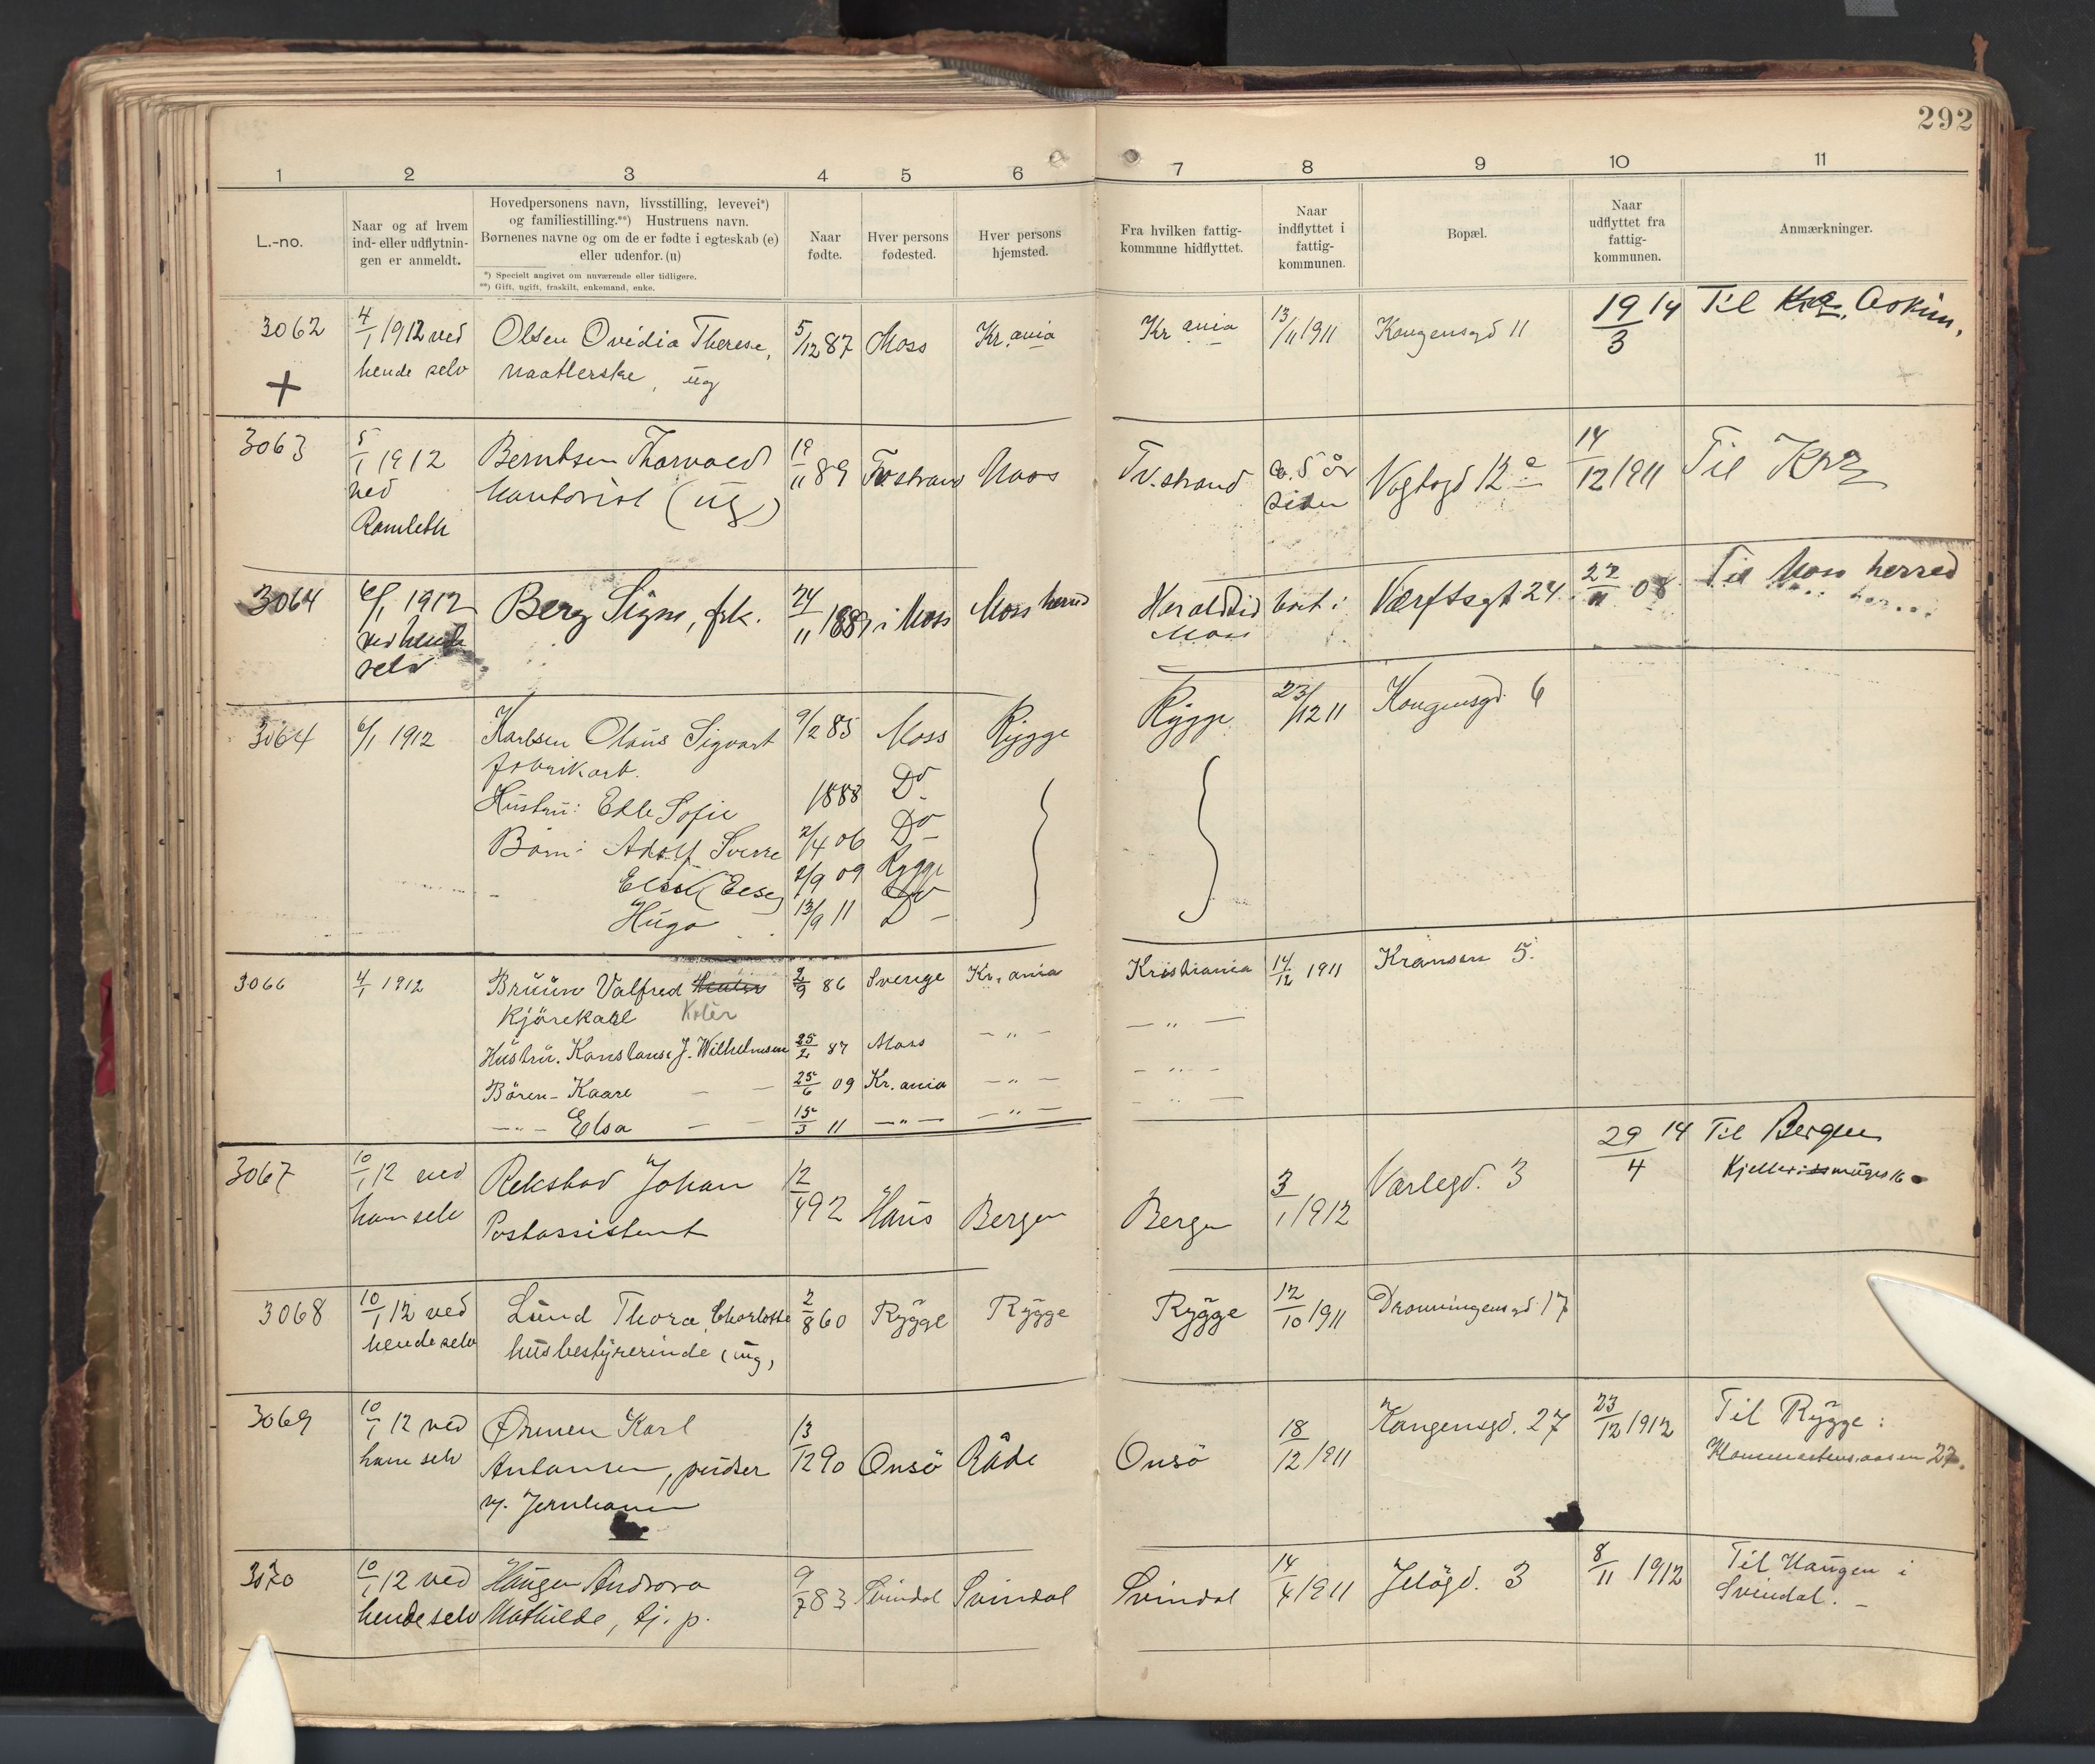 292
1 2 3 4 5 6 7 8 9 10 11
L.-no.
Naar og af hvem
ind- eller udflytnin-
gen er anmeldt.
Hovedpersonens navn, livsstilling, levevei*)
og familiestilling.**) Hustruens navn.
Børnenes navne og om de er fødte i egteskab (e)
eller udenfor. (u)
*) Specielt angivet om nuværende eller tidligere.
**) Gift, ugift, fraskilt, enkemand, enke.
Naar
fødte.
Hver persons
fødested.
Hver persons
hjemsted.
Fra hvilken fattig-
kommune hidflyttet.
Naar
indflyttet i
fattig-
kommunen.
Bopæl.
Naar
udflyttet fra
fattig-
kommunen.
Anmærkninger.
3062 4/1 1912 ved Olsen Ovidia Therese, 5/12 87 Moss Kr.ania Kr.ania 13/11 1911 Kongensgd 11 19/3 14 Til Kra, Askim,
+ hende selv naatlerske, ug
3063 5/1 1912 Berntsen Thorvald 19/11 89 Tv.strand Moss Tv.strand ca. 5 år Vogtsgd 12 a 14/12 1911 Til Kra
ved kontorist (ug) siden
Ramleth
3064 6/1 1912 Berg Signe, frk. 24/11 1887 i Moss Moss herred Værftsgt 24 27/11 08 Til Moss herred
ved hende Moss
selv
3064 6/1 1912 Karlsen Olaus Sigvart 9/2 85 Moss Rygge Rygge 23/12 11 Kongensgd. 6
fabrikarb.
Hustru: Edle Sofie 1888 Do
Børn: Adolf Sverre 2/4 06 Do
(Else) 2/9 09 Rygge
Hugo 13/9 11 Do
3066 4/1 1912 Bruun Valfred 2/9 86 Sverige Kr.ania Kristiania 14/12 1911 Kransen 5.
Kjørekarl
Hustru. Konstanse J. Wilhelmsen 25/2 87 Moss - " - - " -
Børen - Kaare - - 25/6 09 Kr. ania - " - - " -
- " - Elsa - - 15/3 11 - " - - " - - " -
3067 10/1 12 ved Rekstad Johan 12/4 92 Haus Bergen Bergen 3/1 1912 Varlegd. 3 29/4 14 Til Bergen
ham selv Postassistent
3068 10/1 12 ved Lund Thora Charlotte 2/8 60 Rygge Rygge Rygge 12/10 1911 Dronningensgd. 17
hende selv husbestyrerinde (ug)
3069 10/1 12 ved Ørmen Karl 13/12 90 Onsö Råde Onsö 18/12 1911 Kongensgd. 27 23/12 1912 Til Rygge:
ham selv Antonsen, pudser
v. Jernbanen
3070 10/1 12 ved Haugen Androra 9/7 83 Svindal Svindal Svindal 14/4 1911 Jeløgd. 3 8/11 1912 Til Haugen i
hende selv Mathilde, tj. p. Svindal. -